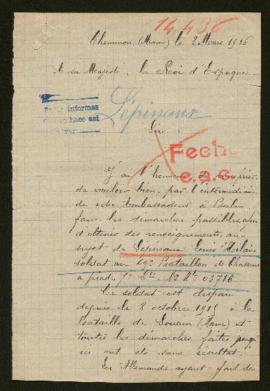 14438
Chemmon (Marne) le 2 Mars 1916
A sa Majesté le Roi d'Espagne
Lépinaux
Sire
Fecho
e.a.c.
J'ai l'honneur
de vouloir bien par l'intermédiaire
de votre Ambassadeur à Berlin
faire les démarches possibles
d'obtenir des renseignements au
sujet de Lépinaux Louis Hilaire
soldat au Bataillon de Chasseurs
à pied, 1e Cie No Me 03716
Ce soldat est disparu
depuis le 2 octobre 1915 à la
bataille de Souain (Marne) et
toutes les démarches faites jusqu'
ici ont été sans résultat
Les Allemands ayant fait des